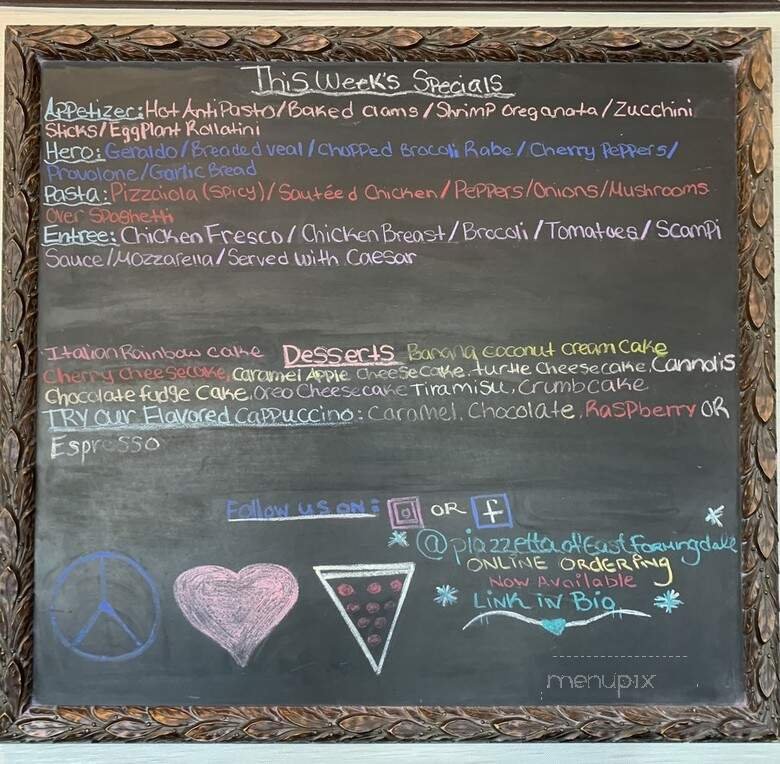 This Week's Specials
Appetizer: Hot AntiPasto/Baked clams/Shrimp Oreganata/Zucchini
Sticks/EggPlant Rollatini
Hero: Geraldo/Breaded veal/Chopped Brocoli Rabe/Cherry Peppers/
Provolone/Garlic Bread
Pasta: Pizzaiola (spicy)/Sautéed Chicken/Peppers/Onions/Mushrooms
Over Spaghetti
Entree: Chicken Fresco/Chicken Breast/Brocoli/Tomatoes/Scampi
Sauce/Mozzarella/Served with Caesar
Italian Rainbow cake Desserts Banana coconut cream Cake
Cherry Cheesecake, Caramel Apple Cheesecake, turtle Cheesecake, Cannolis
Chocolate fudge Cake, Oreo Cheesecake Tiramisu, Crumbcake
TRY our Flavored Cappuccino: Caramel, Chocolate, Raspberry OR
Espresso
Follow us on: OR f
@piazzettaofEastfarmingdale
ONLINE ORDERING
Now Available
LINK IN Bio
menupix